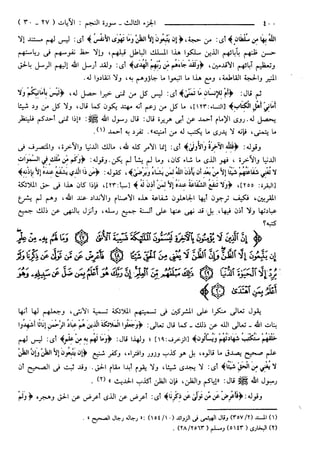 ٤٠٠ الجزء الثالث - سورة النجم : الآيات ( ٢٧ - ٣٠ )
اللَّهُ بِهَا مِن سُلْطَانٍ﴾ أي: من حجة، ﴿إِن يَتَّبِعُونَ إِلَّا الظَّنَّ وَمَا تَهْوَى الْأَنفُسُ﴾ أي: ليس لهم مستند إلا
حسن ظنهم بآبائهم الذين سلكوا هذا المسلك الباطل قبلهم، وإلا حظ نفوسهم في رياستهم
وتعظيم آبائهم الأقدمين، ﴿وَلَقَدْ جَاءَهُم مِّن رَّبِّهِمُ الْهُدَىٰ﴾ أي: ولقد أرسل الله إليهم الرسل بالحق
المنير والحجة القاطعة، ومع هذا ما اتبعوا ما جاؤوهم به، ولا انقادوا له.
ثم قال: ﴿أَمْ لِلْإِنسَانِ مَا تَمَنَّىٰ﴾ أي: ليس كل من تمنى خيرا حصل له، ﴿لَّيْسَ بِأَمَانِيِّكُمْ وَلَا
أَمَانِيِّ أَهْلِ الْكِتَابِ﴾ [النساء: ١٢٣]، ما كل من زعم أنه مهتد يكون كما قال، ولا كل من ود شيئا
يحصل له. روى الإمام أحمد عن أبي هريرة قال: قال رسول الله ﷺ: «إذا تمنى أحدكم فلينظر
ما يتمنى، فإنه لا يدري ما يكتب له من أمنيته». تفرد به أحمد (١).
وقوله: ﴿فَلِلَّهِ الْآخِرَةُ وَالْأُولَىٰ﴾ أي: إنما الأمر كله لله، مالك الدنيا والآخرة، والمتصرف في
الدنيا والآخرة ، فهو الذي ما شاء كان، وما لم يشأ لم يكن. وقوله: ﴿وَكَم مِّن مَّلَكٍ فِي السَّمَاوَاتِ
لَا تُغْنِي شَفَاعَتُهُمْ شَيْئًا إِلَّا مِن بَعْدِ أَن يَأْذَنَ اللَّهُ لِمَن يَشَاءُ وَيَرْضَىٰ﴾، كقوله: ﴿مَن ذَا الَّذِي يَشْفَعُ عِندَهُ إِلَّا بِإِذْنِهِ﴾
[البقرة: ٢٥٥]، ﴿وَلَا تَنفَعُ الشَّفَاعَةُ عِندَهُ إِلَّا لِمَنْ أَذِنَ لَهُ﴾ [سبأ: ٢٣]، فإذا كان هذا في حق الملائكة
المقربين، فكيف ترجون أيها الجاهلون شفاعة هذه الأصنام والأنداد عند الله، وهو لم يشرع
عبادتها ولا أذن فيها، بل قد نهى عنها على ألسنة جميع رسله، وأنزل بالنهي عن ذلك جميع
كتبه؟
﴿إِنَّ الَّذِينَ لَا يُؤْمِنُونَ بِالْآخِرَةِ لَيُسَمُّونَ الْمَلَائِكَةَ تَسْمِيَةَ الْأُنثَىٰ وَمَا لَهُم بِهِ مِنْ عِلْمٍ إِن
يَتَّبِعُونَ إِلَّا الظَّنَّ وَإِنَّ الظَّنَّ لَا يُغْنِي مِنَ الْحَقِّ شَيْئًا فَأَعْرِضْ عَن مَّن تَوَلَّىٰ عَن ذِكْرِنَا وَلَمْ يُرِدْ إِلَّا
الْحَيَاةَ الدُّنْيَا ذَٰلِكَ مَبْلَغُهُم مِّنَ الْعِلْمِ إِنَّ رَبَّكَ هُوَ أَعْلَمُ بِمَن ضَلَّ عَن سَبِيلِهِ وَهُوَ
أَعْلَمُ بِمَنِ اهْتَدَىٰ﴾
يقول تعالى منكرا على المشركين في تسميتهم الملائكة تسمية الأنثى، وجعلهم لها أنها
بنات الله - تعالى الله عن ذلك - كما قال تعالى: ﴿وَجَعَلُوا الْمَلَائِكَةَ الَّذِينَ هُمْ عِبَادُ الرَّحْمَٰنِ إِنَاثًا أَشَهِدُوا
خَلْقَهُمْ سَتُكْتَبُ شَهَادَتُهُمْ وَيُسْأَلُونَ﴾ [الزخرف: ١٩] ؛ ولهذا قال: ﴿وَمَا لَهُم بِهِ مِنْ عِلْمٍ﴾ أي: ليس لهم
علم صحيح يصدق ما قالوه، بل هو كذب وزور وافتراء، وكفر شنيع ﴿إِن يَتَّبِعُونَ إِلَّا الظَّنَّ وَإِنَّ الظَّنَّ
لَا يُغْنِي مِنَ الْحَقِّ شَيْئًا﴾ أي: لا يجدي شيئا، ولا يقوم أبدا مقام الحق. وقد ثبت في الصحيح أن
رسول الله ﷺ قال: «إياكم والظن، فإن الظن أكذب الحديث » (٢) .
وقوله: ﴿فَأَعْرِضْ عَن مَّن تَوَلَّىٰ عَن ذِكْرِنَا﴾ أي: أعرض عن الذي أعرض عن الحق واهجره ﴿وَلَمْ
(١) المسند (٣٥٧/٢) وقال الهيثمي في الزوائد (١٥٤/١٠): «رجاله رجال الصحيح» .
(٢) البخاري (٥١٤٣) ومسلم (٢٨/٢٥٦٣) .